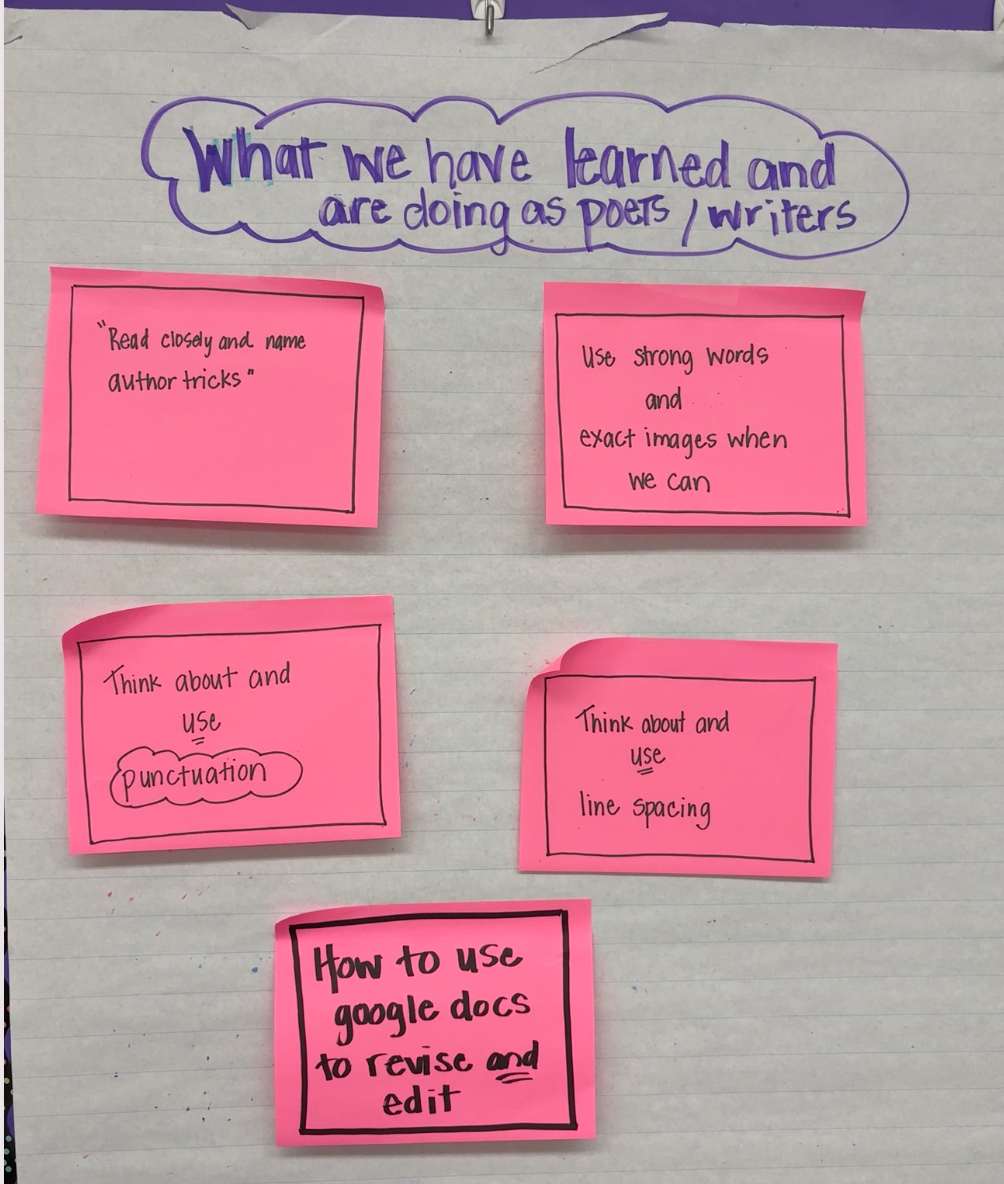 What we have learned and
are doing as poets / writers
"Read closely and name
author tricks"
Use strong words
and
exact images when
we can
Think about and
use
punctuation
Think about and
use
line spacing
How to use
google docs
to revise and
edit